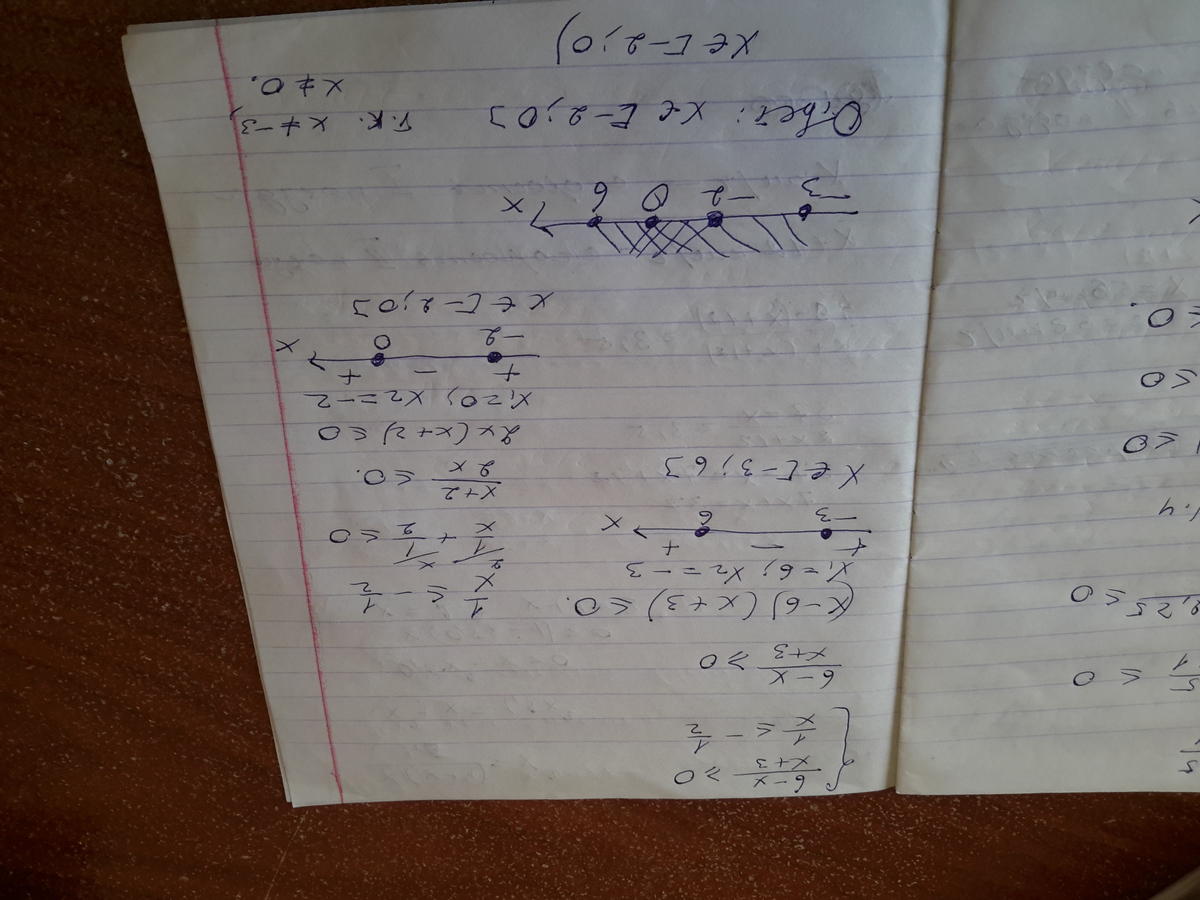 { 6-x / x+3 ≥ 0
1/x ≤ - 1/2
6-x / x+3 ≥ 0
(x-6)(x+3) ≤ 0.
x₁=6; x₂=-3
+ - +
-3 6 x
x ∈ [-3; 6]
1/x ≤ - 1/2
1/x + 1/2 ≤ 0
x+2 / 2x ≤ 0.
2x(x+2) ≤ 0
x₁=0; x₂=-2
+ - +
-2 0 x
x ∈ [-2; 0]
-3 -2 0 6 x
Ответ: x ∈ [-2; 0] т.к. x ≠ -3;
x ≠ 0.
x ∈ [-2; 0)
5
5/1 ≤ 0
2,25 ≤ 0
1.4
≤ 0
≤ 0
≤ 0.